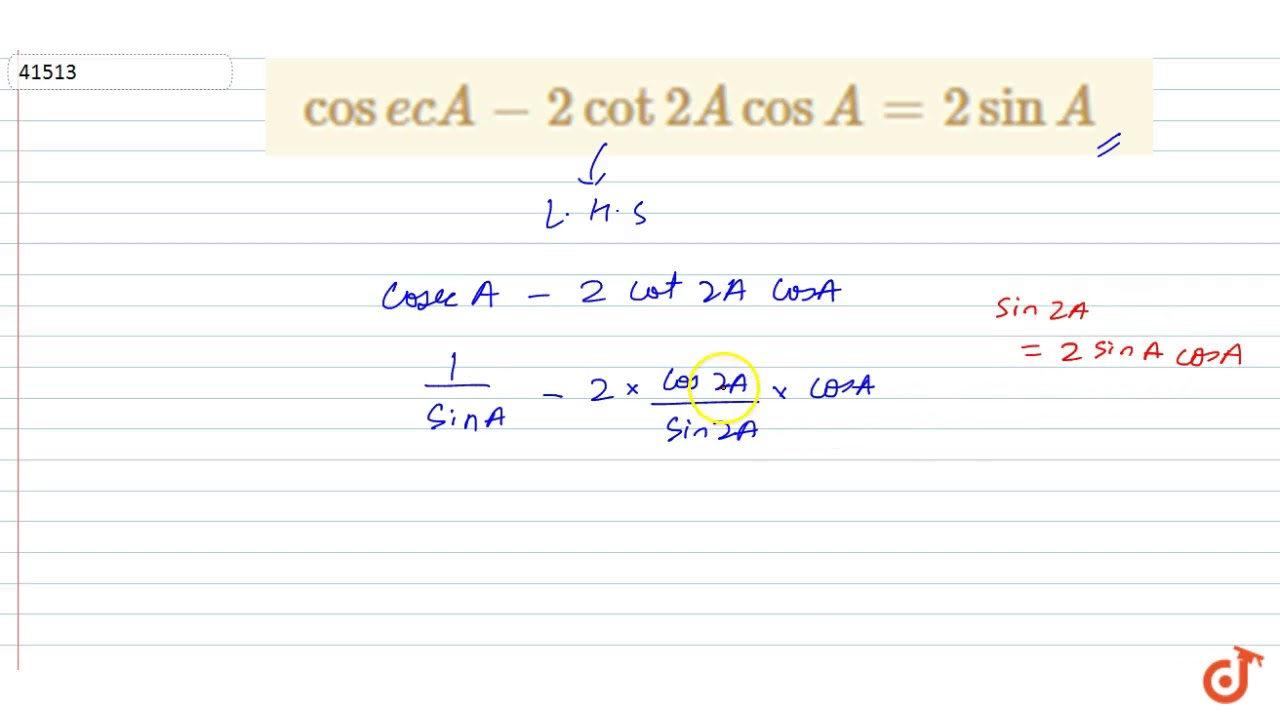 41513
cosecA − 2 cot 2A cos A = 2 sin A
L.H.S
cosec A − 2 cot 2A cosA
sin 2A
= 2 sin A cosA
1/sin A − 2 × cos 2A/sin 2A × cosA